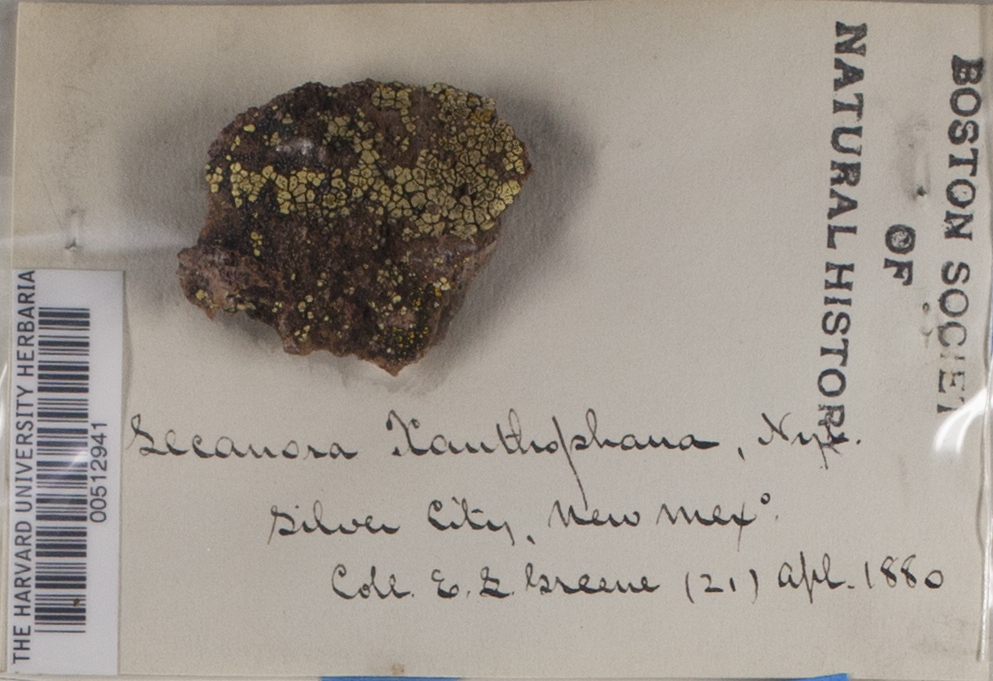 BOSTON SOCIET
OF
NATURAL HISTORY
THE HARVARD UNIVERSITY HERBARIA
00512941
Lecanora Xanthophana, Nyl.
Silver City, New Mexº.
Coll. E. L. Greene (21) Apl. 1880